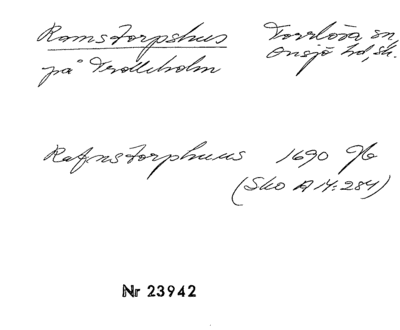 Ramstorpshus Torrlösa sn,
på Trolleholm Onsjö hd, sk.
Rafnstorphuus 1690 %
(Sko A 14:284)
Nr 23942